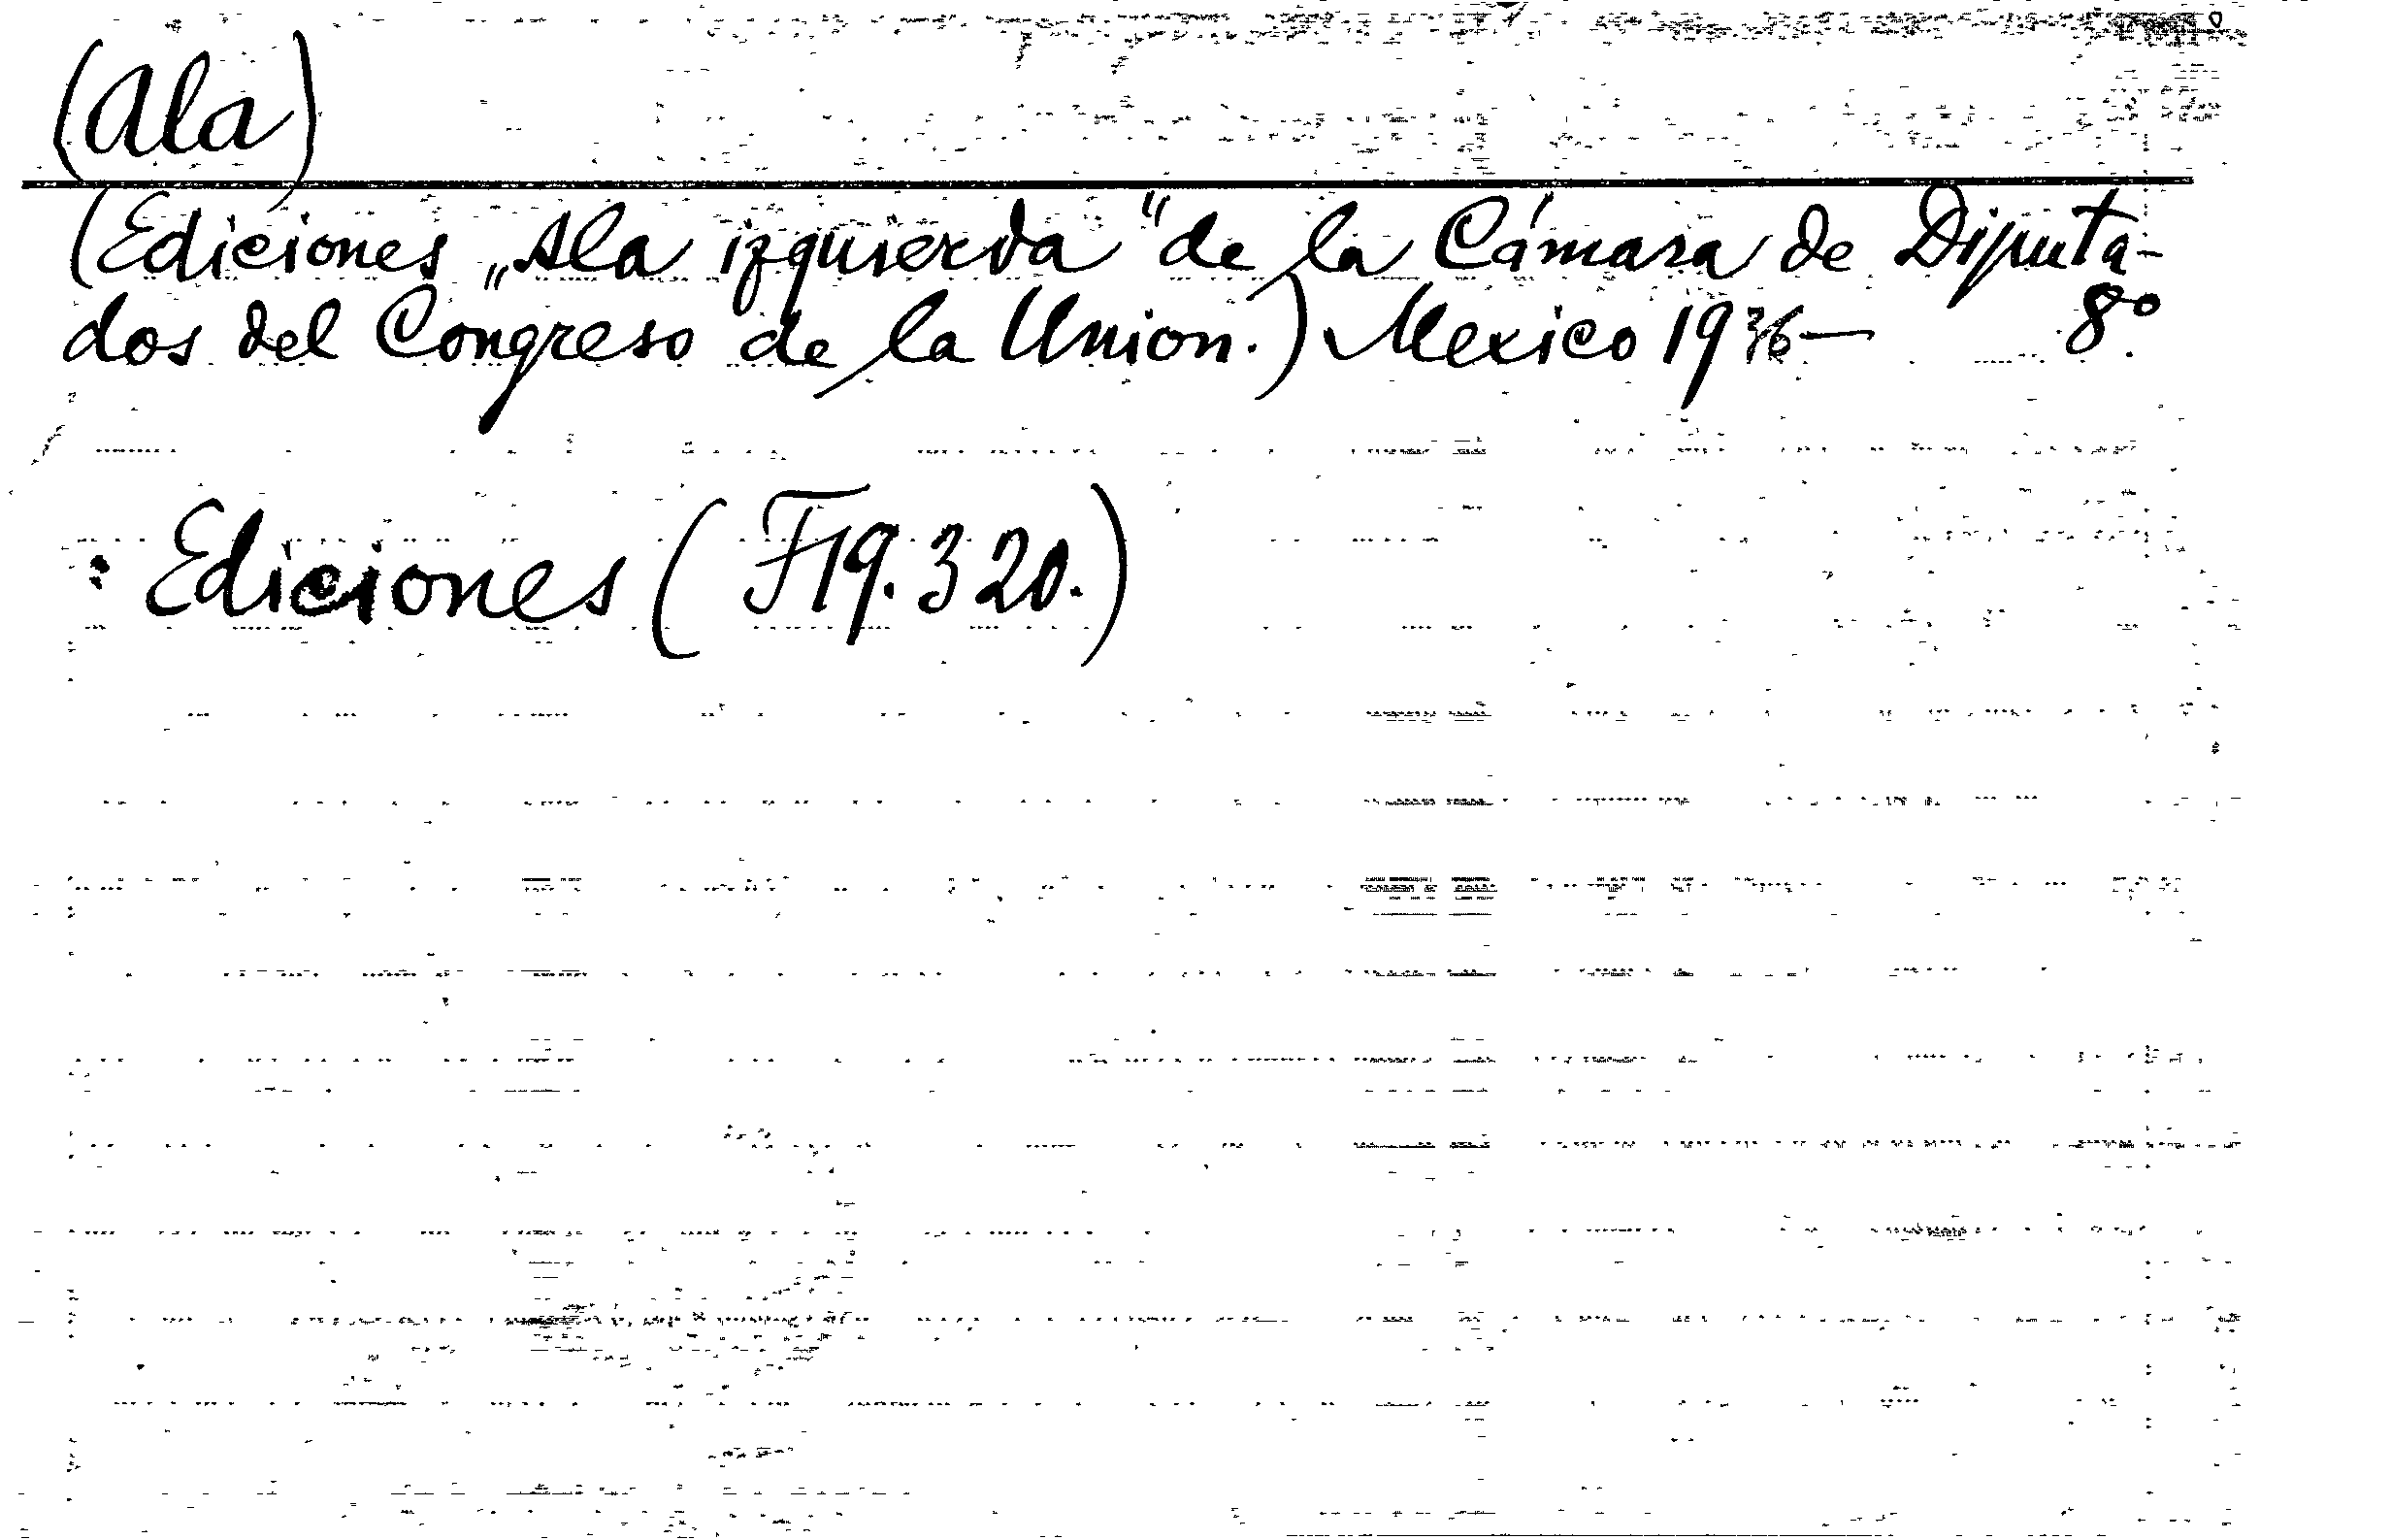 (Ala)
(Ediciones „Ala izquierda“ de la Cámara de Diputa-
dos del Congreso de la Union.) Mexico 1936— 8°
: Ediciones (F19.320.)